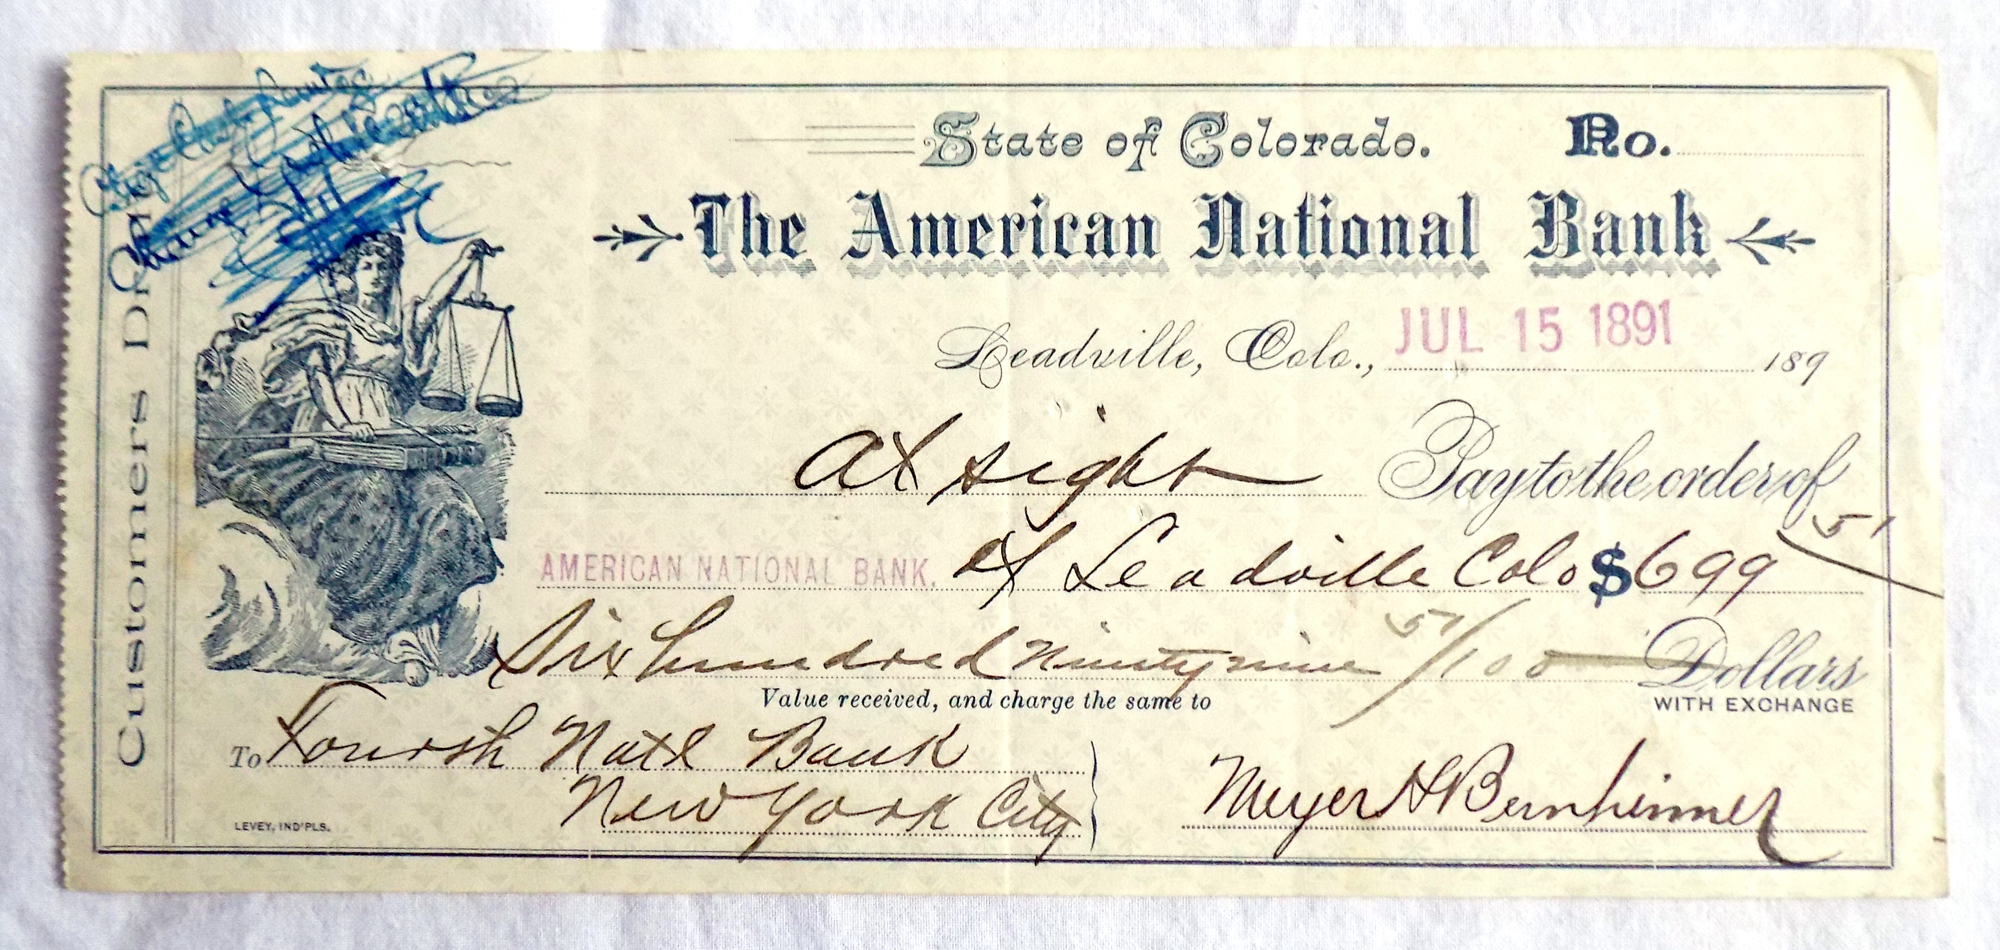 State of Colorado. No.
The American National Bank
Leadville, Colo., JUL 15 1891 189
At sight Pay to the order of
AMERICAN NATIONAL BANK. of Leadville Colo $699 51
Six hundred Ninety nine 51/100 Dollars
WITH EXCHANGE
Value received, and charge the same to
To Fourth Natl Bank
New York City
Meyer H Bernheimer
LEVEY, IND'PLS.
Customers Draft